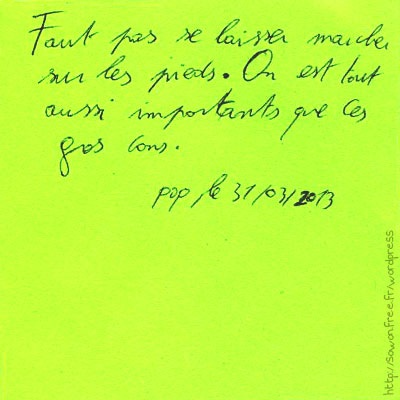 Faut pas se laisser marcher
sur les pieds. On est tout
aussi importants que ces
gros cons.
pop, le 31/03/2013
http://sowonfree.fr/wordpress